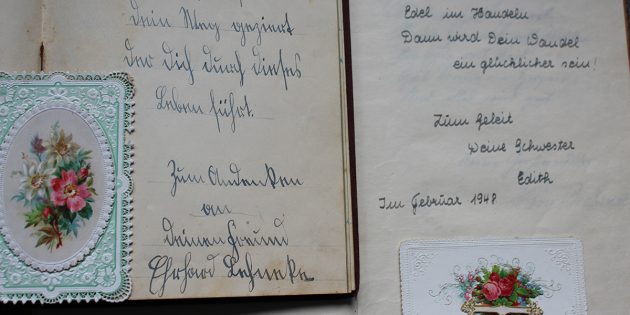 dein Weg geziert
der dich durch dieses
Leben führt.
Zum Andenken
an
deinen Freund
Ehrhard Lehneke
Edel im Handeln
Dann wird Dein Wandel
ein glücklicher sein!
Zum Geleit
Deine Schwester
Edith
Im Februar 1948